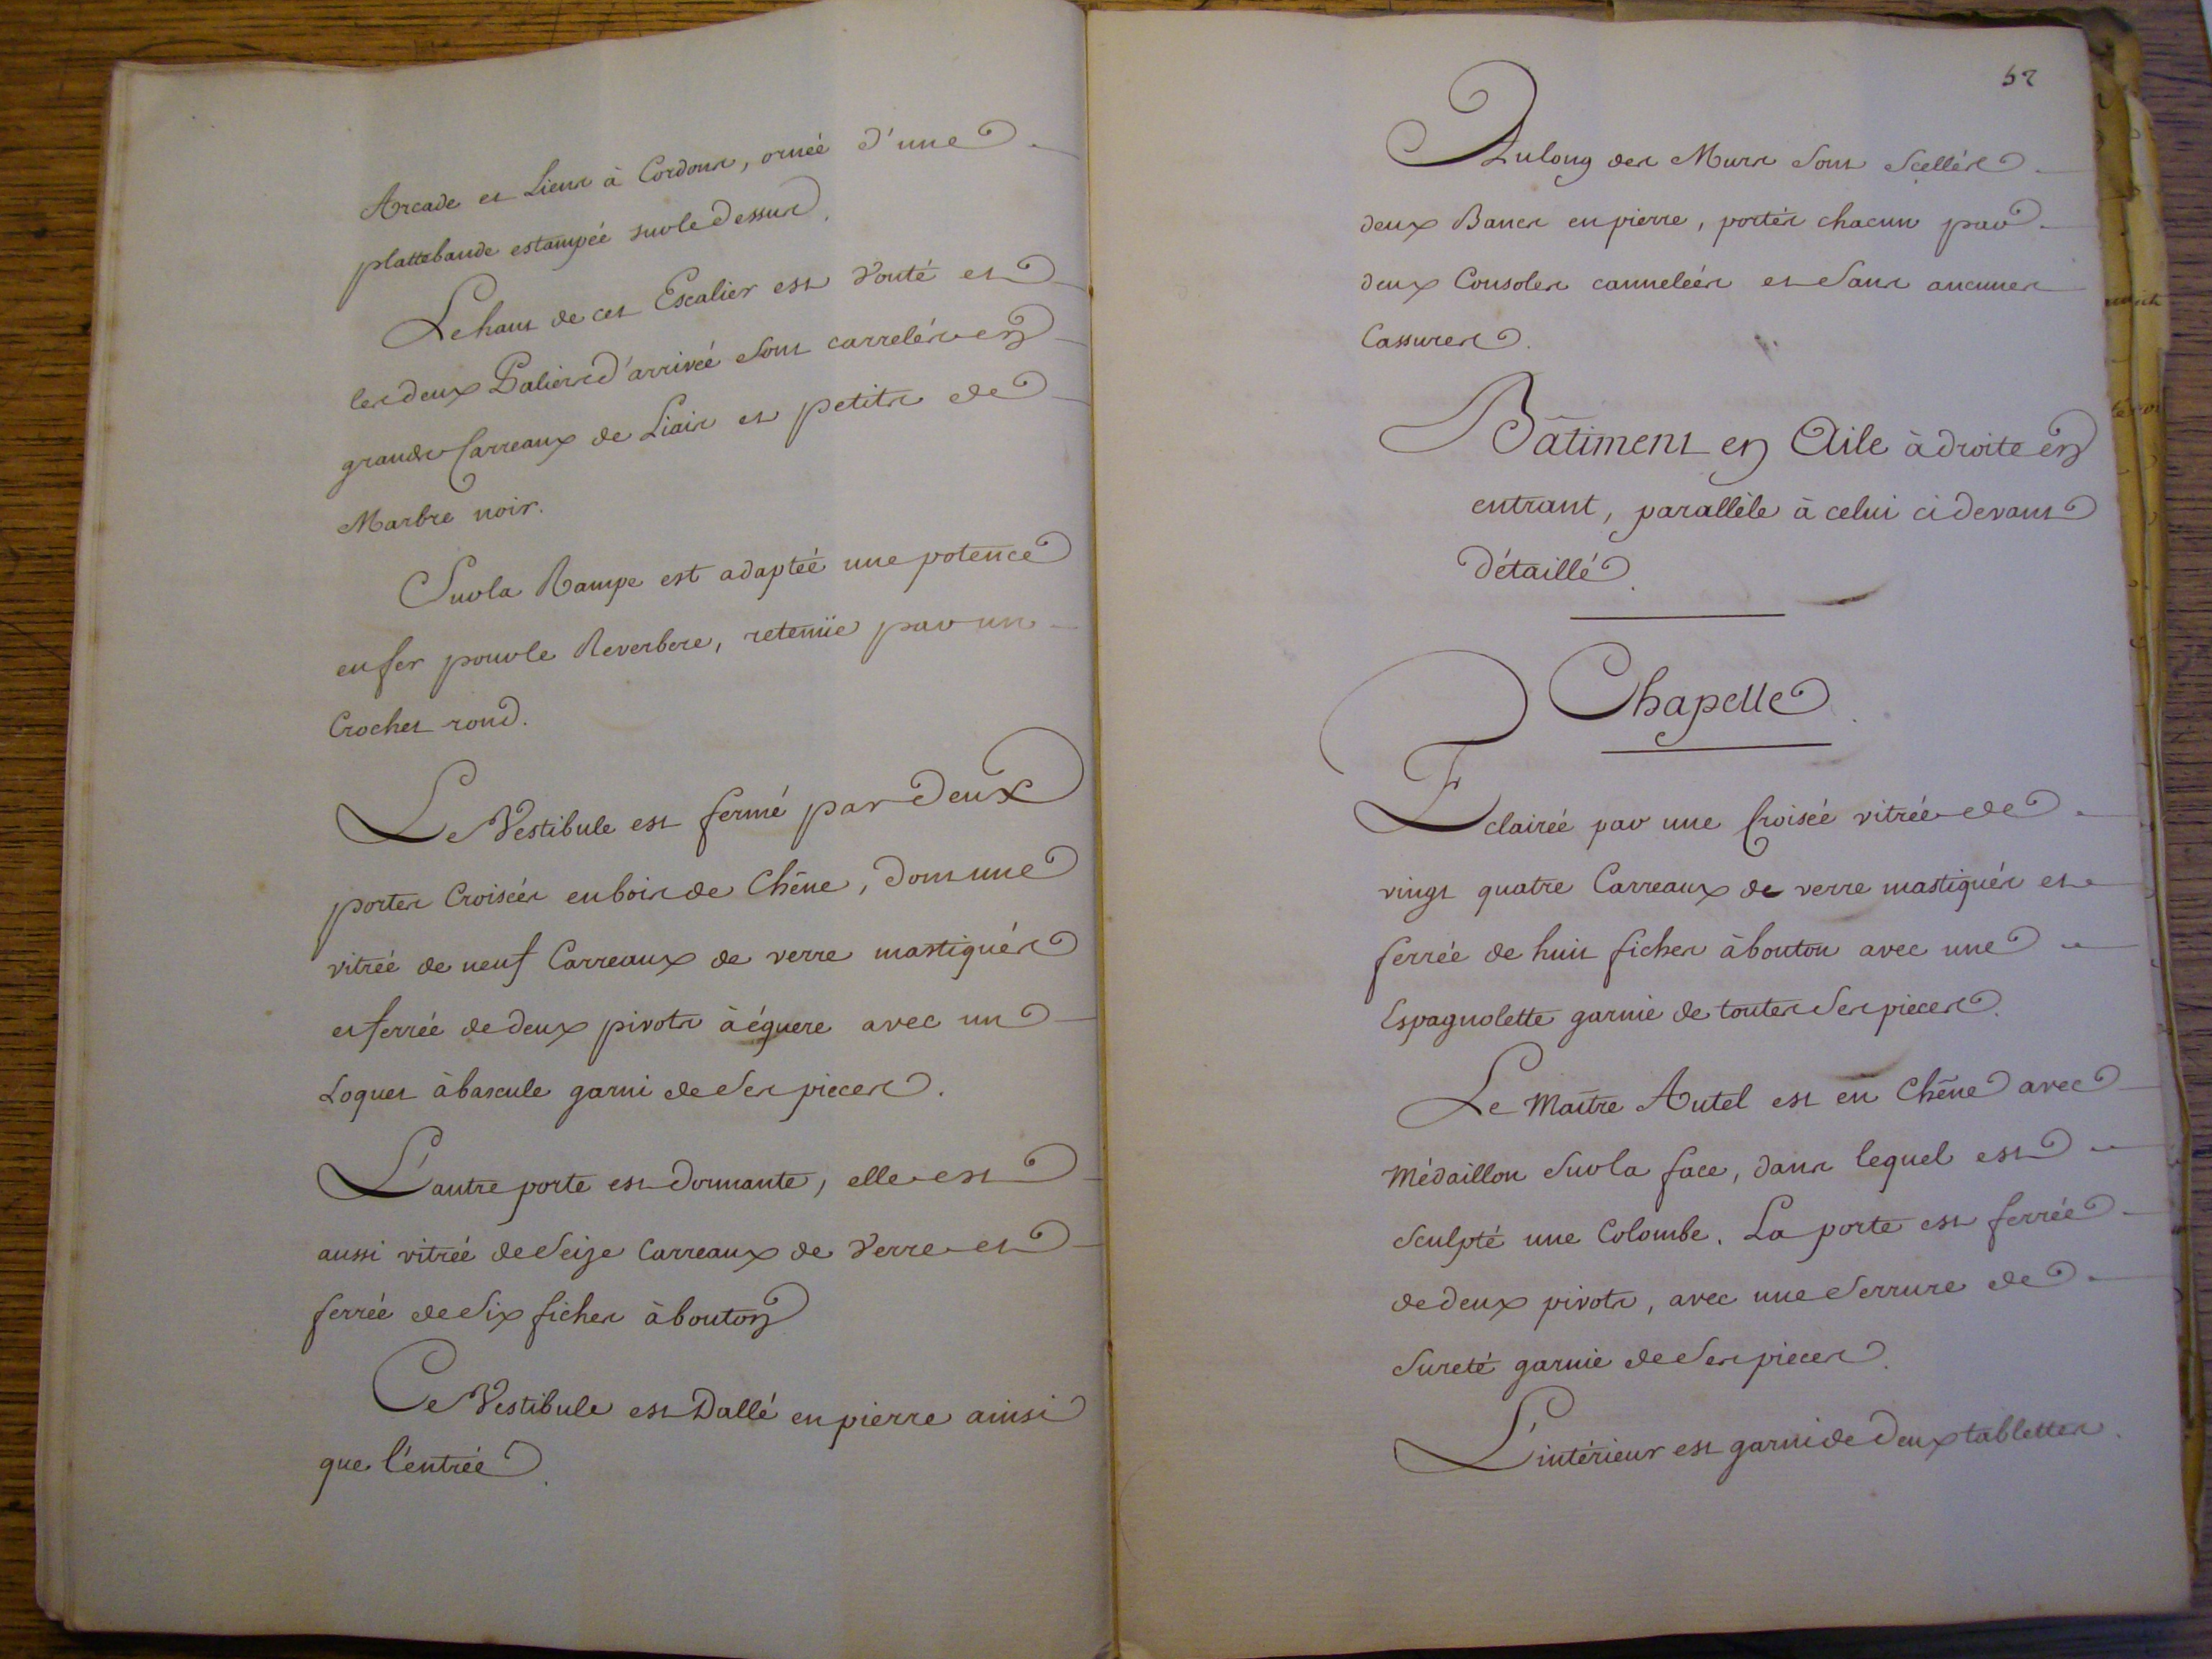 Arcade et Liens à Cordons, ornée d'une
plattebande estampée sur le dessus.
Le haut de cet Escalier est Vouté et
les deux Paliers d'arrivée sont carrelés en
grands Carreaux de Liais et petits de
Marbre noir.
Sur la Rampe est adaptée une potence
en fer pour le Reverbere, retenüe par un
Crochet rond.
Le Vestibule est fermé par deux
portes Croisées en bois de Chêne, dont une
vitrée de neuf Carreaux de verre mastiqués
et ferrée de deux pivots à équere avec un
Loquet à bascule garni de ses pieces.
L'autre porte est dormante, elle est
aussi vitrée de Seize Carreaux de Verre et
ferrée de Six fiches à bouton
Ce Vestibule est Dallé en pierre ainsi
que l'entrée.
52
Au long des Murs sont scellés
deux Bancs en pierre, portés chacun par
deux Consoles cannelées et sans aucunes
Cassures.
Bâtiment en Aile à droite en
entrant, parallèle à celui ci devant
détaillé.
Chapelle.
Eclairée par une Croisée vitrée de
vingt quatre Carreaux de verre mastiqués et
ferrée de huit fiches à bouton avec une
Espagnolette garnie de toutes ses pieces.
Le Maître Autel est en Chêne avec
Médaillon sur la face, dans lequel est
sculpté une Colombe. La porte est ferrée
de deux pivots, avec une Serrure de
Sureté garnie de ses pieces.
L'intérieur est garni de deux tablettes.